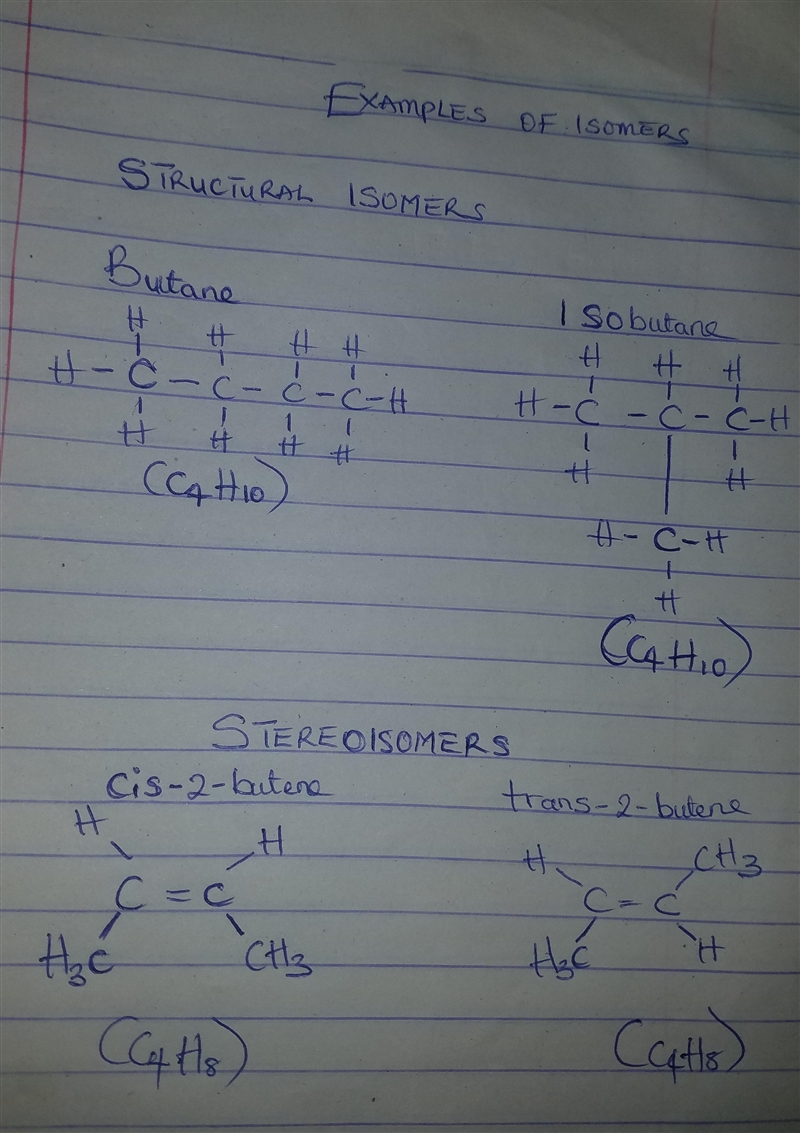 EXAMPLES OF ISOMERS
STRUCTURAL ISOMERS
Butane
H H H H
H - C - C - C - C - H
H H H H
(C4H10)
Isobutane
H H H
H - C - C - C - H
H H
H - C - H
H
(C4H10)
STEREOISOMERS
cis-2-butene
H H
C = C
H3C CH3
(C4H8)
trans-2-butene
H CH3
C = C
H3C H
(C4H8)